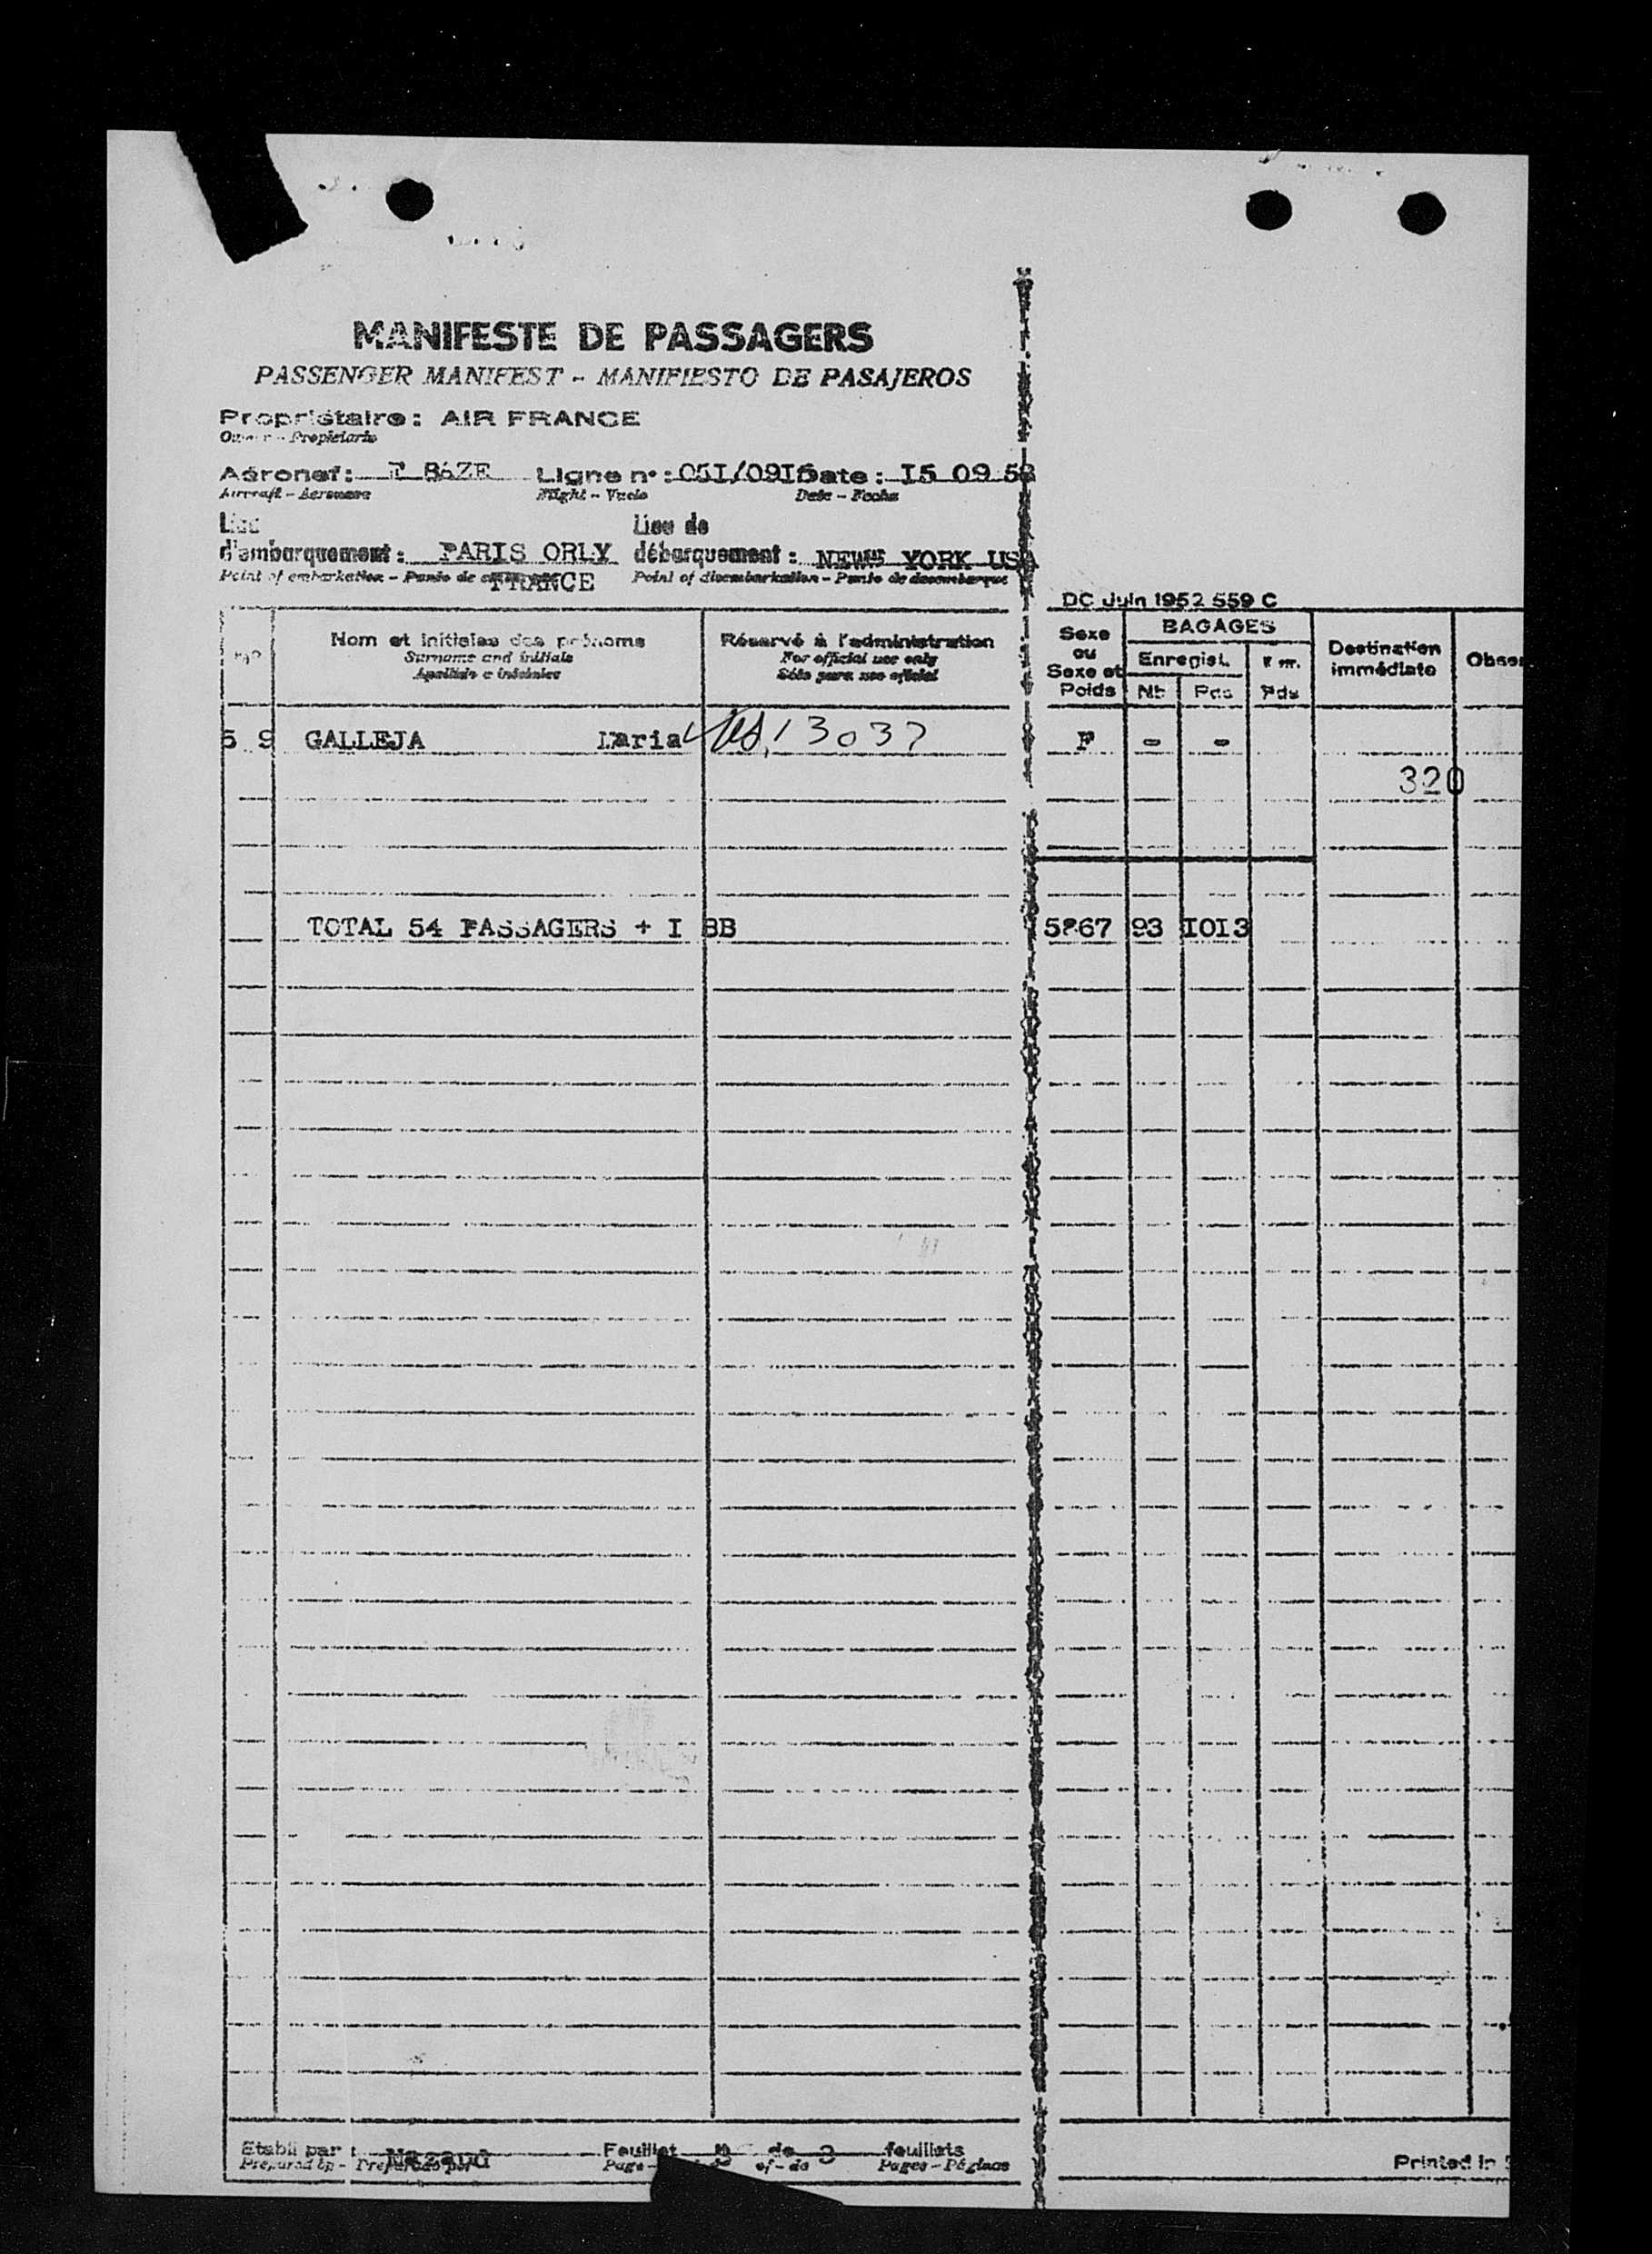 MANIFESTE DE PASSAGERS
PASSENGER MANIFEST - MANIFIESTO DE PASAJEROS
Propriétaire : AIR FRANCE
Owner - Propietario
Aéronef : BAZE Ligne n° : 051/091 Date : I5 09 52
Aircraft - Aeronave Flight - Vuelo Date - Fecha
Lieu Lieu de
d'embarquement : PARIS ORLY débarquement : NEW YORK USA
Point of embarkation - Punto de FRANCE Point of disembarkation - Punto de desembarque
DC Juin 1952 559 C
N° Nom et initiales des prénoms Réservé à l'administration Sexe ou Sexe et Poids BAGAGES Destination immédiate Obser
Surname and initials For official use only Enregist.
Apellido e iniciales Sólo para uso oficial Nb Pds Pds
5 9 GALLEJA Maria 13037 F - -
320
TOTAL 54 PASSAGERS + I BB 5867 93 I0I3
Etabli par : Feuillet de 3 feuillets
Prepared by - Preparado por Page of - de Pages - Páginas
Printed in